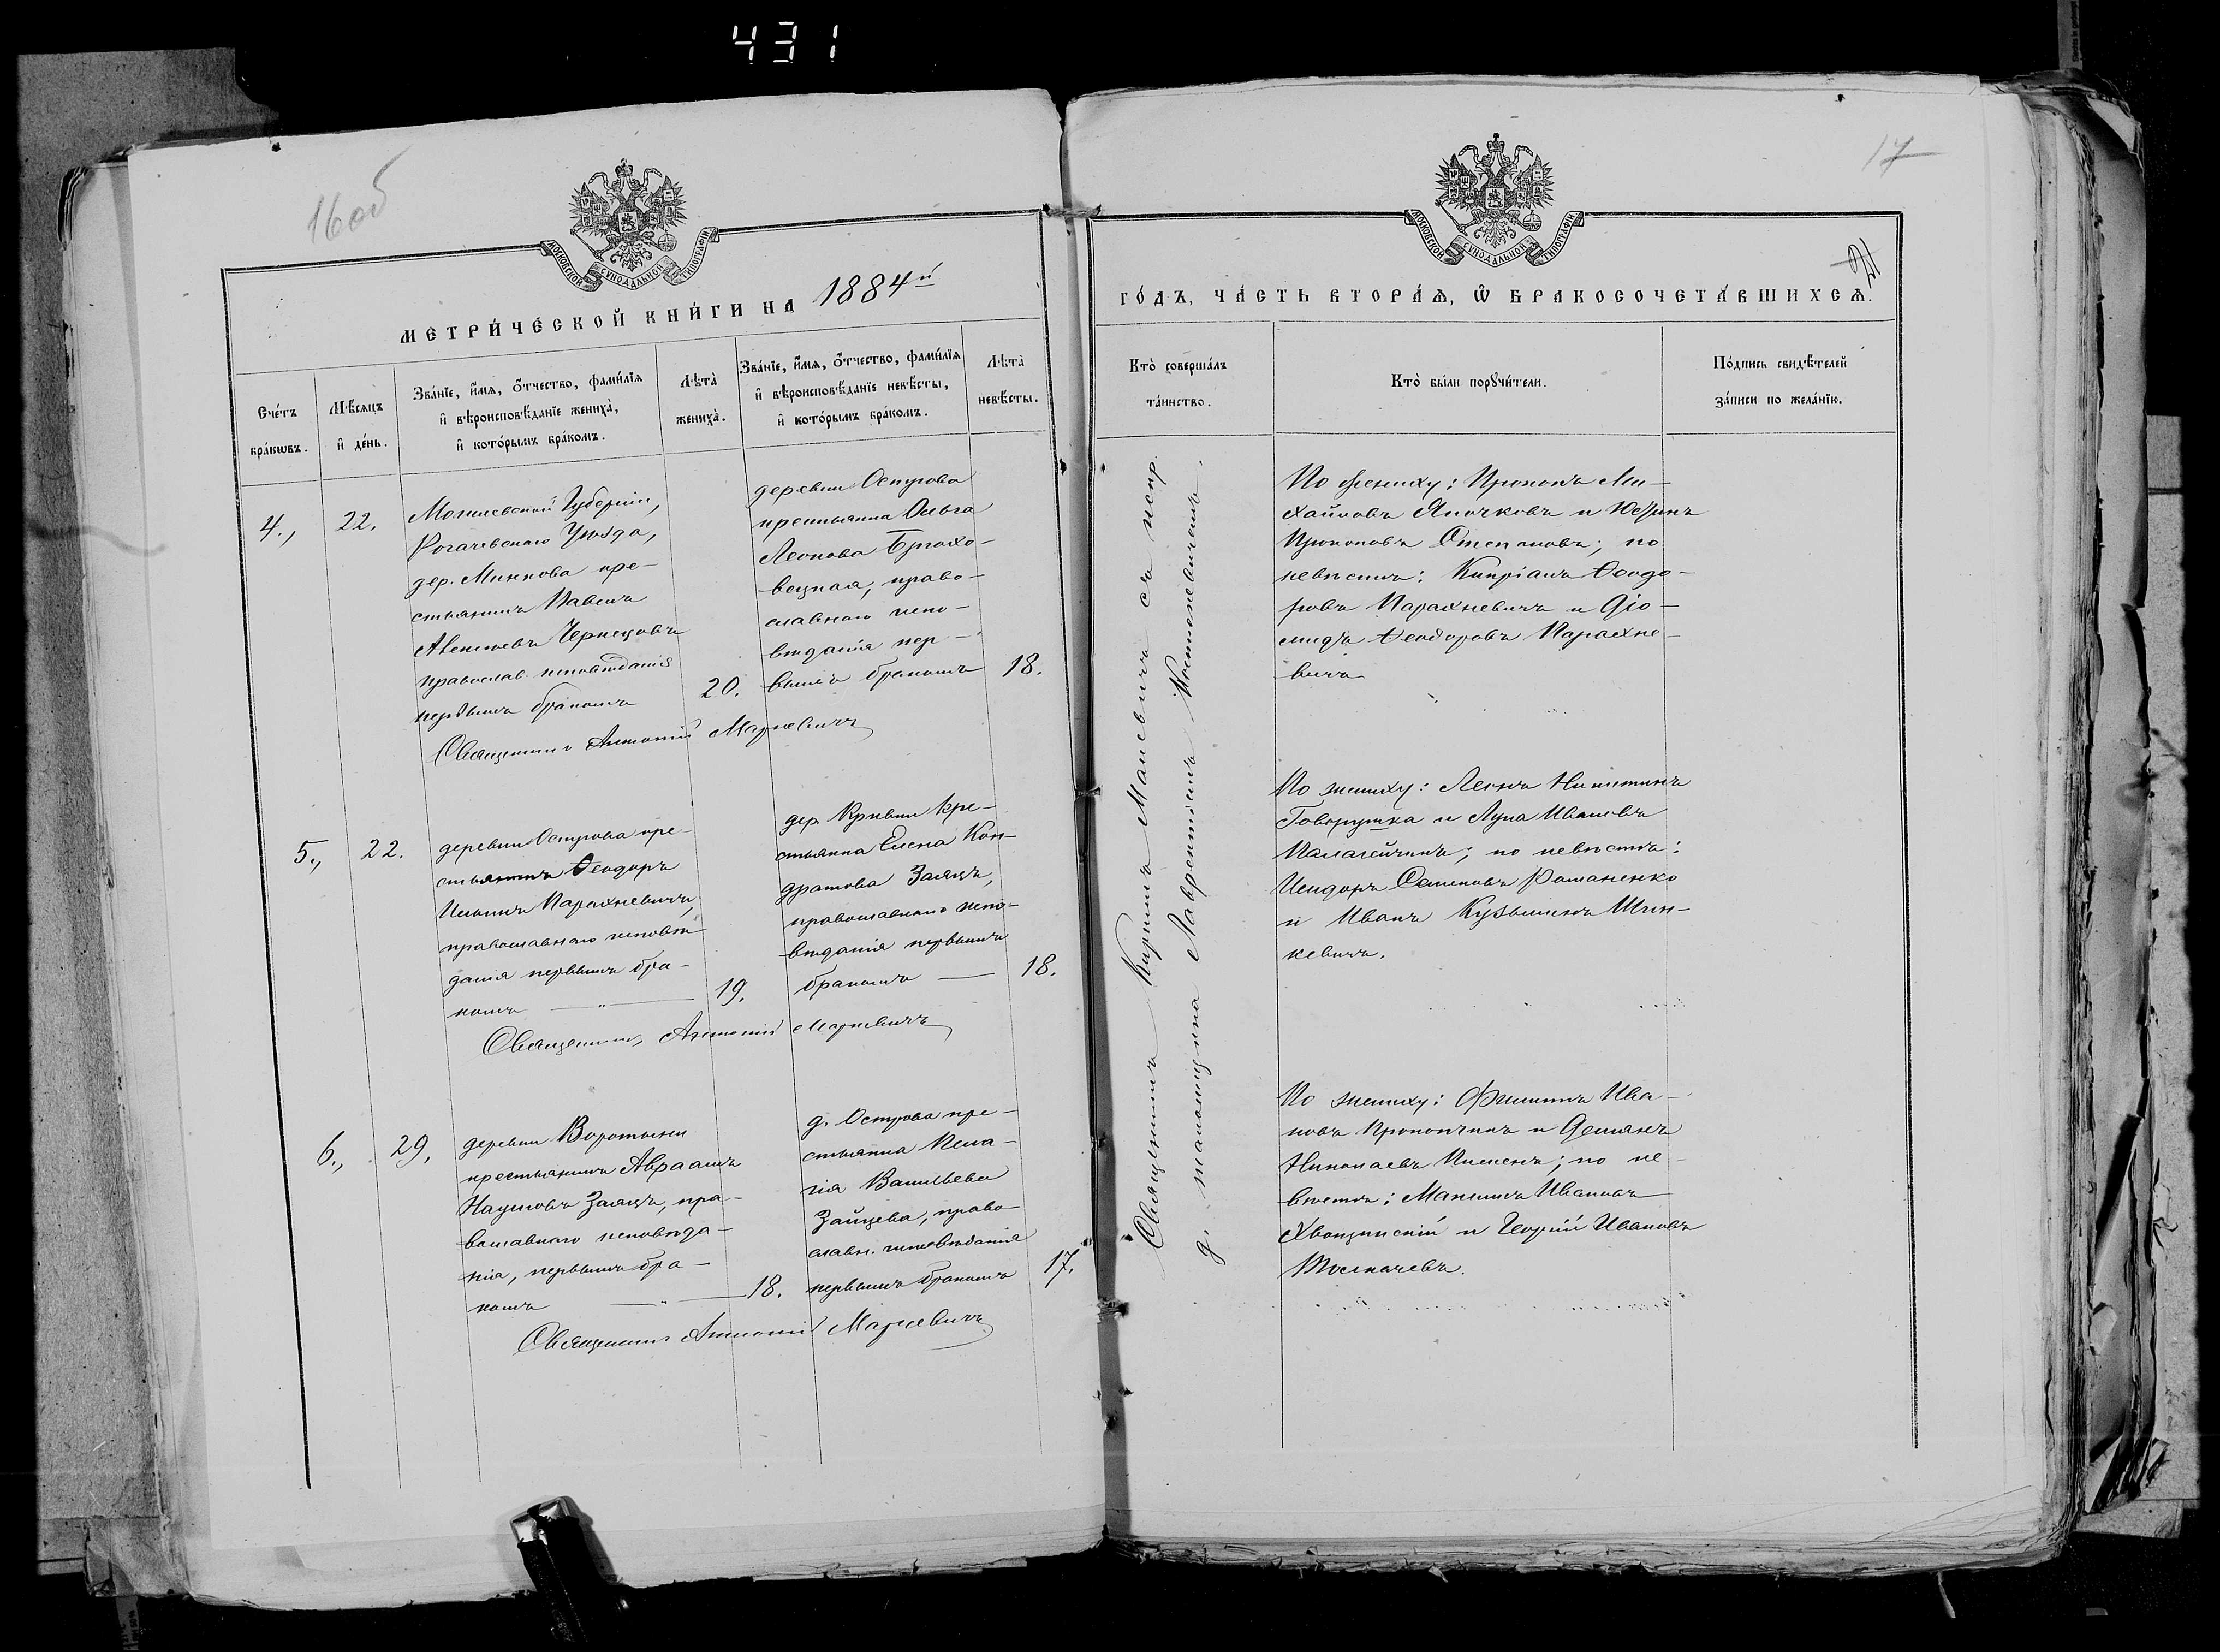 431
16 об
МОСКОВСКОЙ СѴНОДАЛЬНОЙ ТИПОГРАФІИ
МЕТРИ́ЧЕСКОЙ КНИ́ГИ НА 1884й
Сче́тъ бра́кѡвъ.
Мѣ́сяцъ и҆ де́нь.
Зва́нїе, и҆́мѧ, ѻ҆́тчество, фами́лїѧ
и҆ вѣроисповѣ́данїе жениха̀,
и҆ кото́рымъ бра́комъ.
Лѣта̀ жениха̀.
Зва́нїе, и҆́мѧ, ѻ҆́тчество, фами́лїѧ
и҆ вѣроисповѣ́данїе невѣ́сты,
и҆ кото́рымъ бра́комъ.
Лѣта̀ невѣ́сты.
4., 22.
Могилевской Губерніи,
Рогачевскаго Уѣзда,
дер. Минкова кре-
стьянинъ Павелъ
Чернецовъ
православ. исповѣданія
первымъ бракомъ
20.
деревни Острова
крестьянка Ольга
Леонова
православнаго испо-
вѣданія пер-
вымъ бракомъ
18.
Священникъ Антоній Маркевичъ
5., 22.
деревни Острова кре-
стьянинъ Ѳеодоръ
Ильинъ Парахневичъ,
православнаго исповѣ-
данія первымъ бра-
комъ — „ —
19.
дер. Кривки кре-
стьянка Елена Кон-
дратова Заяцъ,
православнаго испо-
вѣданія первымъ
бракомъ —
18.
Священникъ Антоній Маркевичъ
6., 29.
деревни Воротыни
крестьянинъ Авраамъ
Наумовъ Заяцъ, пра-
вославнаго исповѣда-
нія, первымъ бра-
комъ — „ —
18.
д. Острова кре-
стьянка Пела-
гія Васильева
Зайцева, право-
славн. исповѣданія
первымъ бракомъ
17.
Священникъ Антоній Маркевичъ
17
МОСКОВСКОЙ СѴНОДАЛЬНОЙ ТИПОГРАФІИ
ГО́ДЪ, ЧА́СТЬ ВТОРА́Ѧ, Ѽ БРАКОСОЧЕТА́ВШИХСѦ.
Кто̀ соверша́лъ
та́инство.
Кто̀ бы́ли порꙋчи́тели.
По́дпись свидѣ́телей
за́писи по жела́нїю.
Священникъ Кириллъ Малевичъ съ испр.
д. псаломщика Лаврентіемъ Костюкевичемъ.
По жениху: Прокопъ Ми-
хайловъ Япочковъ и
Прокоповъ Степановъ; по
невѣстѣ: Кипріанъ Ѳеодо-
ровъ Парахневичъ и Діо-
мидъ Ѳеодоровъ Парахне-
вичъ
По жениху: Леонъ Никитинъ
Говорушка и Лука Ивановъ
Палагейчикъ; по невѣстѣ:
Исидоръ Семеновъ Романенко
и Иванъ Кузьминъ Шин-
кевичъ.
По жениху: Филиппъ Ива-
новъ Прокопчикъ и Демянъ
Николаевъ Пименъ; по не-
вѣстѣ: Максимъ Ивановъ
Хвощинскій и Георгій Ивановъ
Толкачевъ.